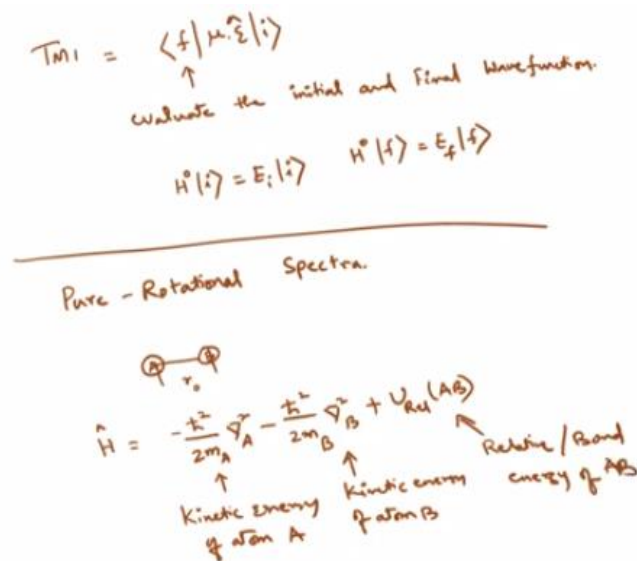 TMI = ⟨f|μ.ε̂|i⟩
evaluate the initial and Final Wavefunction.
H°|i⟩ = Eᵢ|i⟩ H°|f⟩ = E_f|f⟩
Pure - Rotational Spectra.
A B
r₀
Ĥ = -ħ²/2m_A ∇²_A - ħ²/2m_B ∇²_B + U_Rel (AB)
Kinetic Energy of atom A
Kinetic energy of atom B
Relative / Bond energy of AB